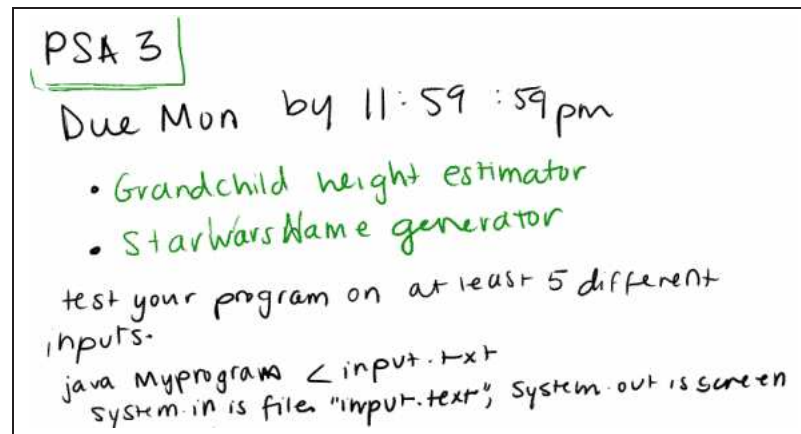 PSA 3
Due Mon by 11:59:59pm
• Grandchild height estimator
• StarWarsName generator
test your program on at least 5 different
inputs.
java Myprogram < input.txt
System.in is file "input.text", System.out is screen